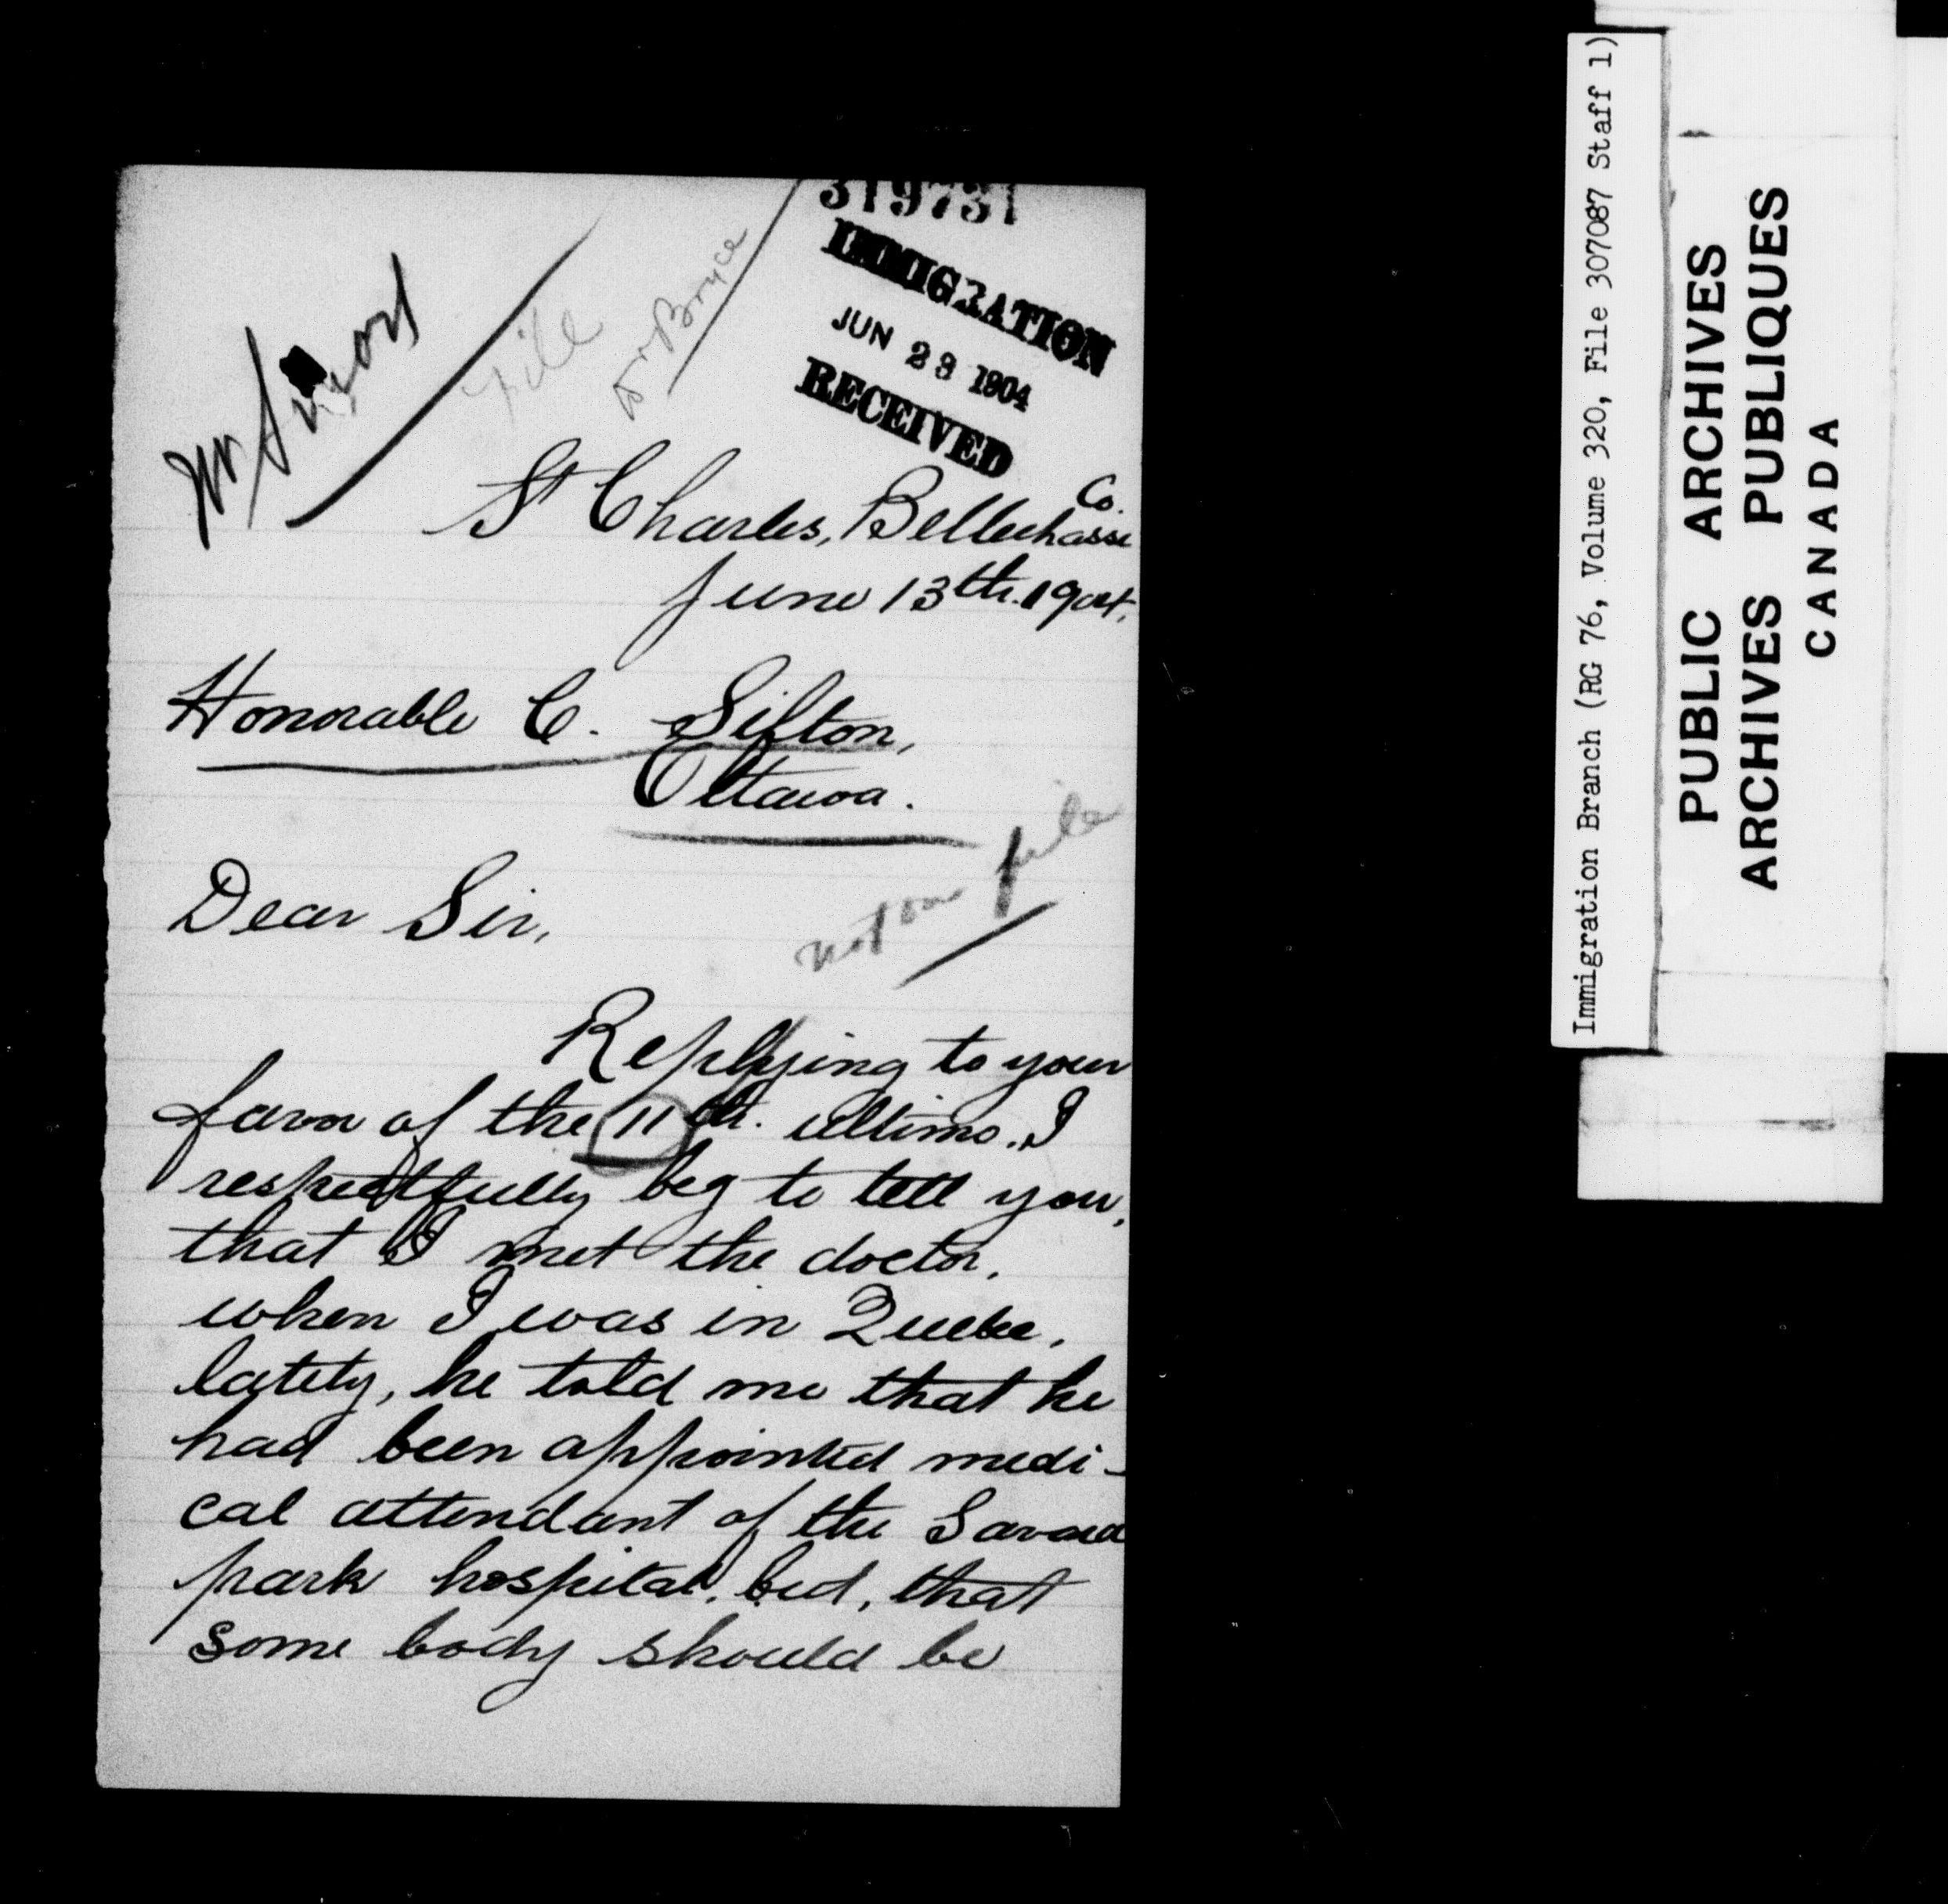 319731
IMMIGRATION
JUN 23 1904
RECEIVED
Mr
File
Dr Bryce
St Charles, Bellechasse Co.
June 13th. 1904.
Honorable C. Sifton,
Ottawa.
not on file
Dear Sir,
Replying to your
favor of the 11th. ultimo. I
respectfully beg to tell you,
that I met the doctor,
when I was in Quebec,
lately, he told me that he
had been appointed medi-
cal attendant of the Savard
park hospital, but, that
some body should be
Immigration Branch (RG 76, Volume 320, File 307087 Staff 1)
PUBLIC ARCHIVES
ARCHIVES PUBLIQUES
CANADA